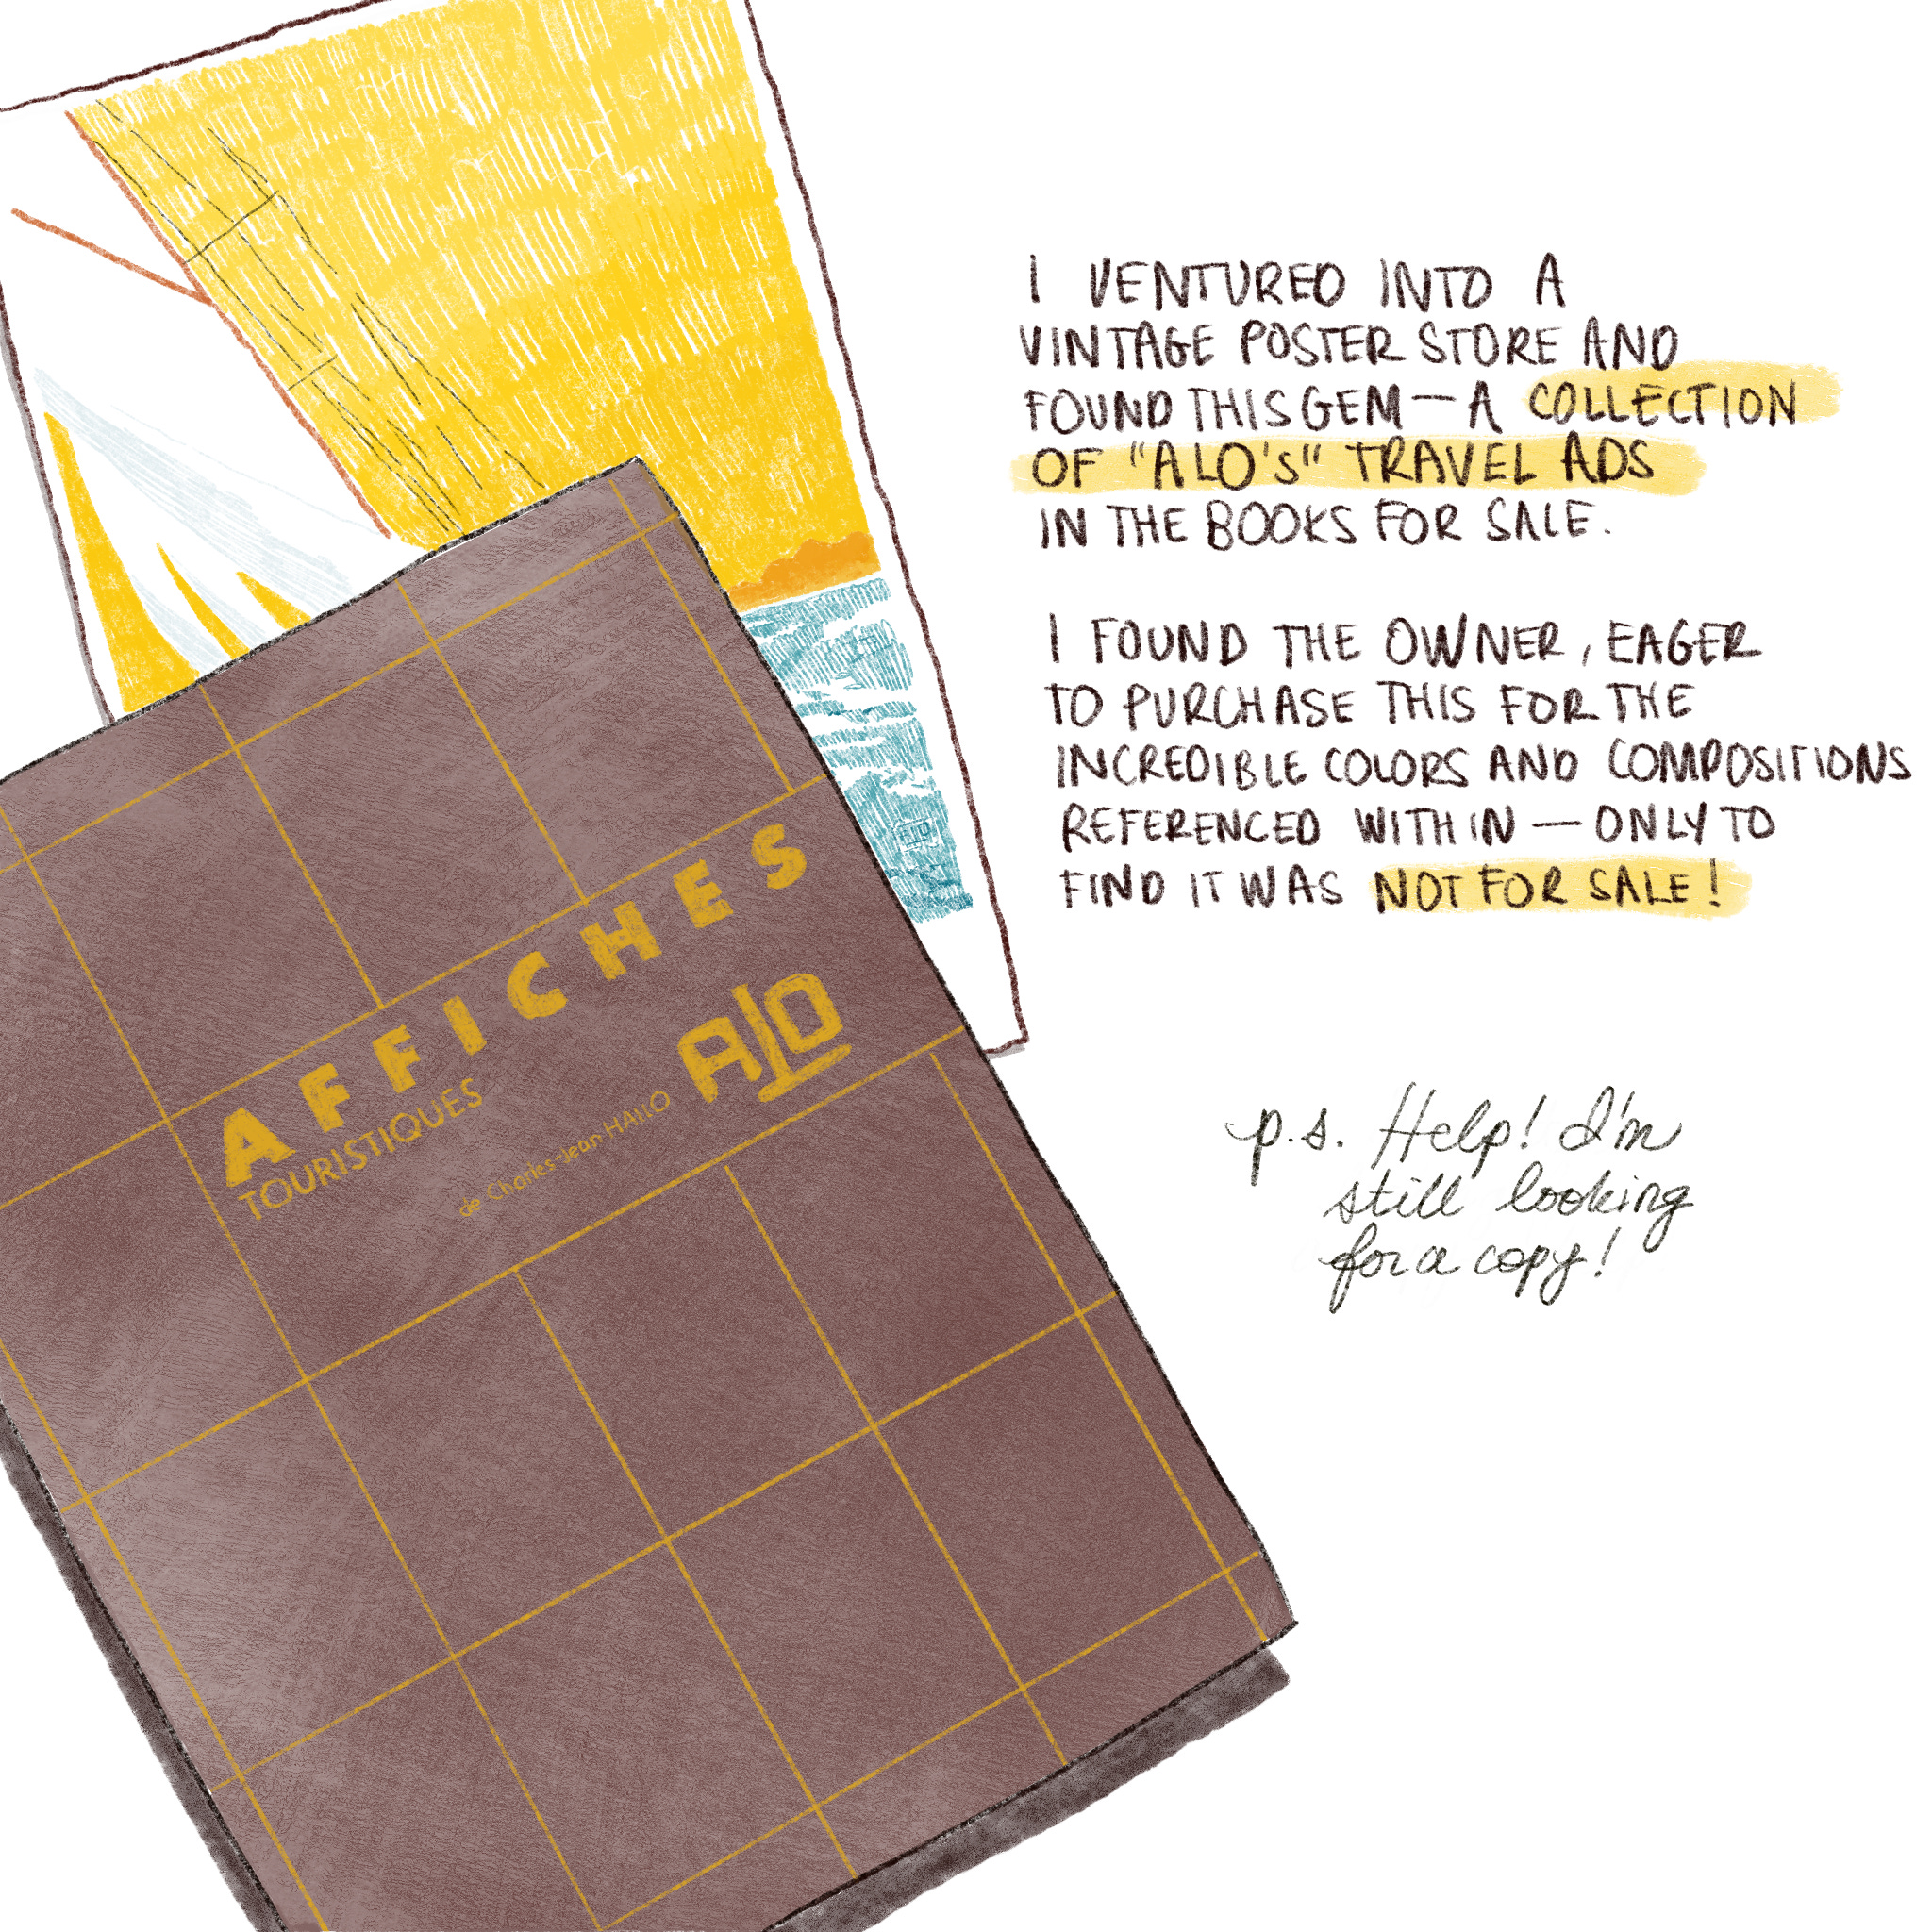 I VENTURED INTO A
VINTAGE POSTER STORE AND
FOUND THIS GEM — A COLLECTION
OF "ALO's" TRAVEL ADS
IN THE BOOKS FOR SALE.
I FOUND THE OWNER, EAGER
TO PURCHASE THIS FOR THE
INCREDIBLE COLORS AND COMPOSITIONS
REFERENCED WITHIN — ONLY TO
FIND IT WAS NOT FOR SALE!
p.s. Help! I'm
still looking
for a copy!
AFFICHES
TOURISTIQUES
de Charles-Jean HALLO
ALO
ALO